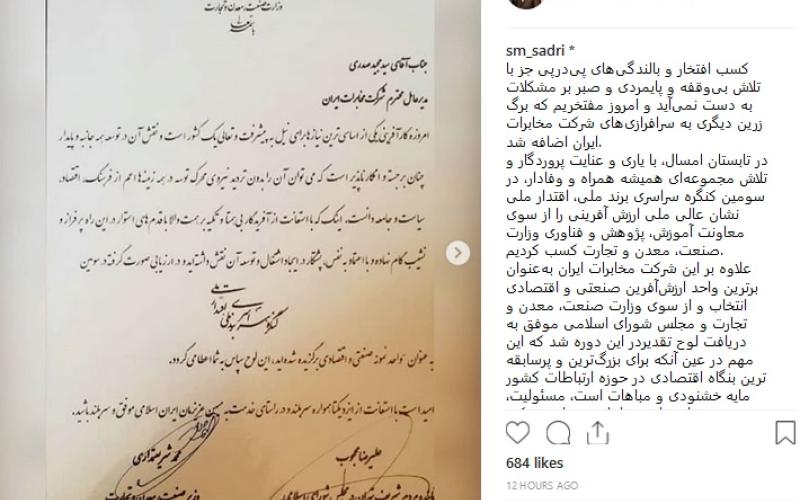 وزارت صنعت، معدن و تجارت
جناب آقای سید مجید صدری
مدیرعامل محترم شرکت مخابرات ایران
امروزه کارآفرینی یکی از اساسی ترین نیازها برای نیل به پیشرفت و تعالی یک کشور است و نقش آن در توسعه همه جانبه و پایدار
چنان برجسته و انکار ناپذیر است که می توان آن را بدون تردید نیروی محرک توسعه در همه زمینه ها اعم از فرهنگ، اقتصاد،
سیاست و جامعه دانست. اینک که با استعانت از آفریدگار بی همتا و تکیه بر همت والا با قدم های استوار در این راه پر فراز و
نشیب گام نهاده و با اعتماد به نفس، پشتکار در ایجاد اشتغال و توسعه آن نقش داشته اید و در ارزیابی صورت گرفته در سومین
کنگره سراسری برند ملی اقتدار ملی
به عنوان "واحد نمونه صنعتی و اقتصادی" برگزیده شده اید، این لوح سپاس به شما اعطا می گردد.
امید است با استعانت از ایزد یکتا همواره سربلند و در راستای خدمت به میهن عزیزمان ایران اسلامی موفق و سربلند باشید.
علیرضا محجوب
محمد شریعتمداری
نماینده مردم شریف تهران در مجلس شورای اسلامی
وزیر صنعت، معدن و تجارت
sm_sadri *
کسب افتخار و بالندگی‌های پی‌درپی جز با
تلاش بی‌وقفه و پایمردی و صبر بر مشکلات
به دست نمی‌آید و امروز مفتخریم که برگ
زرین دیگری به سرافرازی‌های شرکت مخابرات
ایران اضافه شد.
در تابستان امسال، با یاری و عنایت پروردگار و
تلاش مجموعه‌ای همیشه همراه و وفادار، در
سومین کنگره سراسری برند ملی، اقتدار ملی
نشان عالی ملی ارزش آفرینی را از سوی
معاونت آموزش، پژوهش و فناوری وزارت
صنعت، معدن و تجارت کسب کردیم.
علاوه بر این شرکت مخابرات ایران به‌عنوان
برترین واحد ارزش‌آفرین صنعتی و اقتصادی
انتخاب و از سوی وزارت صنعت، معدن و
تجارت و مجلس شورای اسلامی موفق به
دریافت لوح تقدیردر این دوره شد که این
مهم در عین آنکه برای بزرگ‌ترین و پرسابقه
ترین بنگاه اقتصادی در حوزه ارتباطات کشور
مایه خشنودی و مباهات است، مسئولیت،
684 likes
12 HOURS AGO